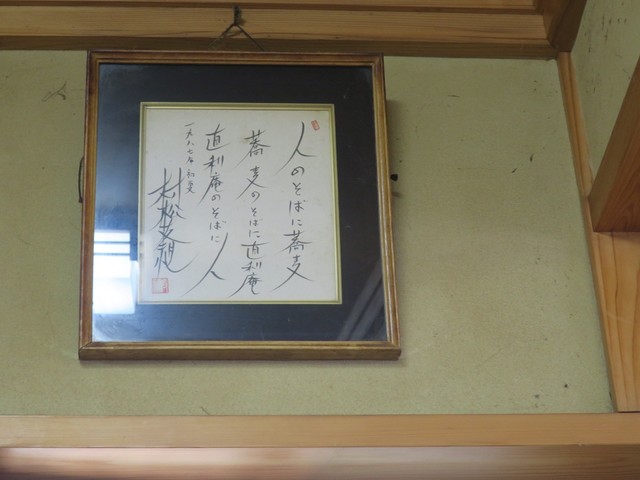 人のそばに蕎麦
蕎麦のそばに直利庵
直利庵のそばに人
一九八七年 初夏
村松友視